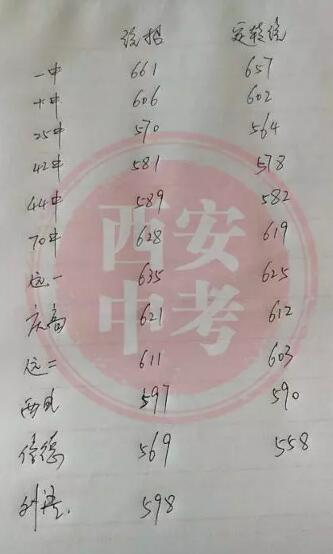 统招 定转统
一中 661 657
十中 606 602
25中 570 564
42中 581 578
44中 589 582
70中 628 619
远一 635 625
庆高 621 612
远二 611 603
西飞 597 590
信德 569 558
外语. 598
西安
中考